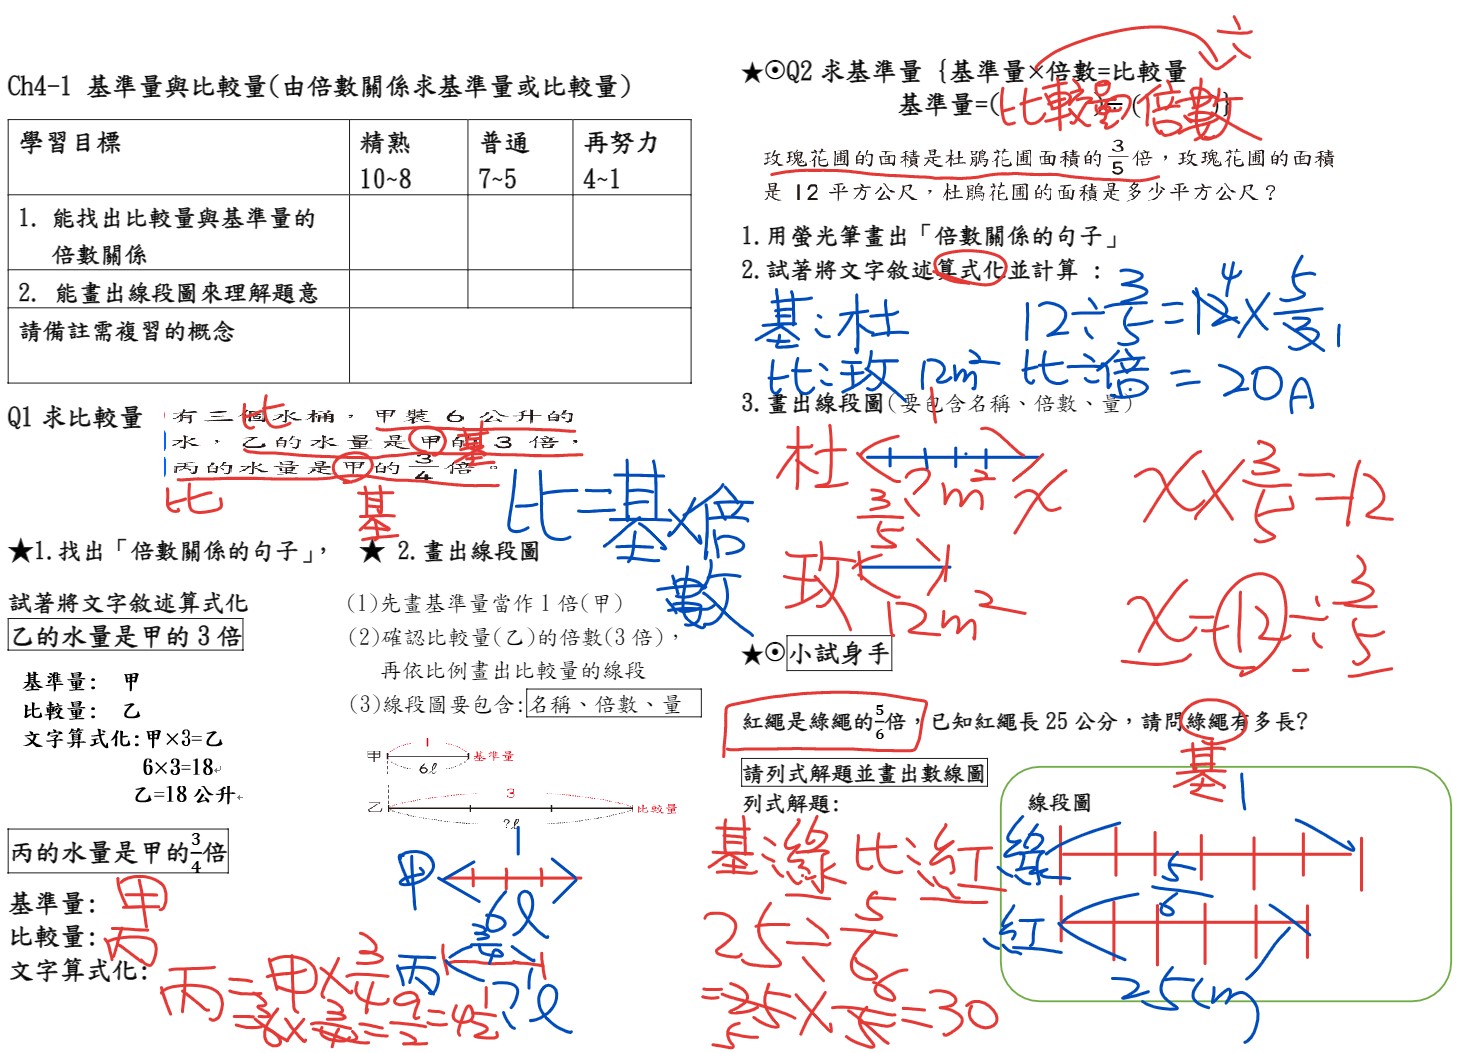 Ch4-1 基準量與比較量(由倍數關係求基準量或比較量)
學習目標 精熟 普通 再努力
10~8 7~5 4~1
1. 能找出比較量與基準量的
倍數關係
2. 能畫出線段圖來理解題意
請備註需複習的概念
Q1 求比較量
有三個水桶，甲裝 6 公升的
水，乙的水量是甲的 3 倍，
丙的水量是甲的 3/4 倍。
比
基
比
基
比=基×倍數
★1.找出「倍數關係的句子」，
試著將文字敘述算式化
乙的水量是甲的 3 倍
基準量： 甲
比較量： 乙
文字算式化:甲×3=乙
6×3=18
乙=18 公升
丙的水量是甲的3/4倍
基準量: 甲
比較量: 丙
文字算式化:
丙=甲×3/4
=6×3/4=9/2=4 1/2
★ 2.畫出線段圖
(1)先畫基準量當作 1 倍(甲)
(2)確認比較量(乙)的倍數(3 倍)，
再依比例畫出比較量的線段
(3)線段圖要包含:名稱、倍數、量
1
甲 基準量
6ℓ
3
乙 比較量
?ℓ
1
甲
6ℓ
3/4
丙
?ℓ
★⊙Q2 求基準量 {基準量×倍數=比較量
÷
基準量=( 比較量 )÷( 倍數 )}
玫瑰花圃的面積是杜鵑花圃面積的 3/5 倍，玫瑰花圃的面積
是 12 平方公尺，杜鵑花圃的面積是多少平方公尺？
1.用螢光筆畫出「倍數關係的句子」
2.試著將文字敘述算式化並計算 :
基:杜 12÷3/5=12×5/3
4 1
比:玫 12m² 比÷倍 = 20 A
3.畫出線段圖(要包含名稱、倍數、量)
1
杜 ?m² x
3/5
玫
12m²
x×3/5=12
x=12÷3/5
★⊙小試身手
紅繩是綠繩的5/6倍，已知紅繩長 25 公分，請問綠繩有多長?
基
請列式解題並畫出數線圖
列式解題:
基:綠 比:紅
25÷5/6
=25×6/5=30
5
線段圖
1
綠
5/6
紅
25cm